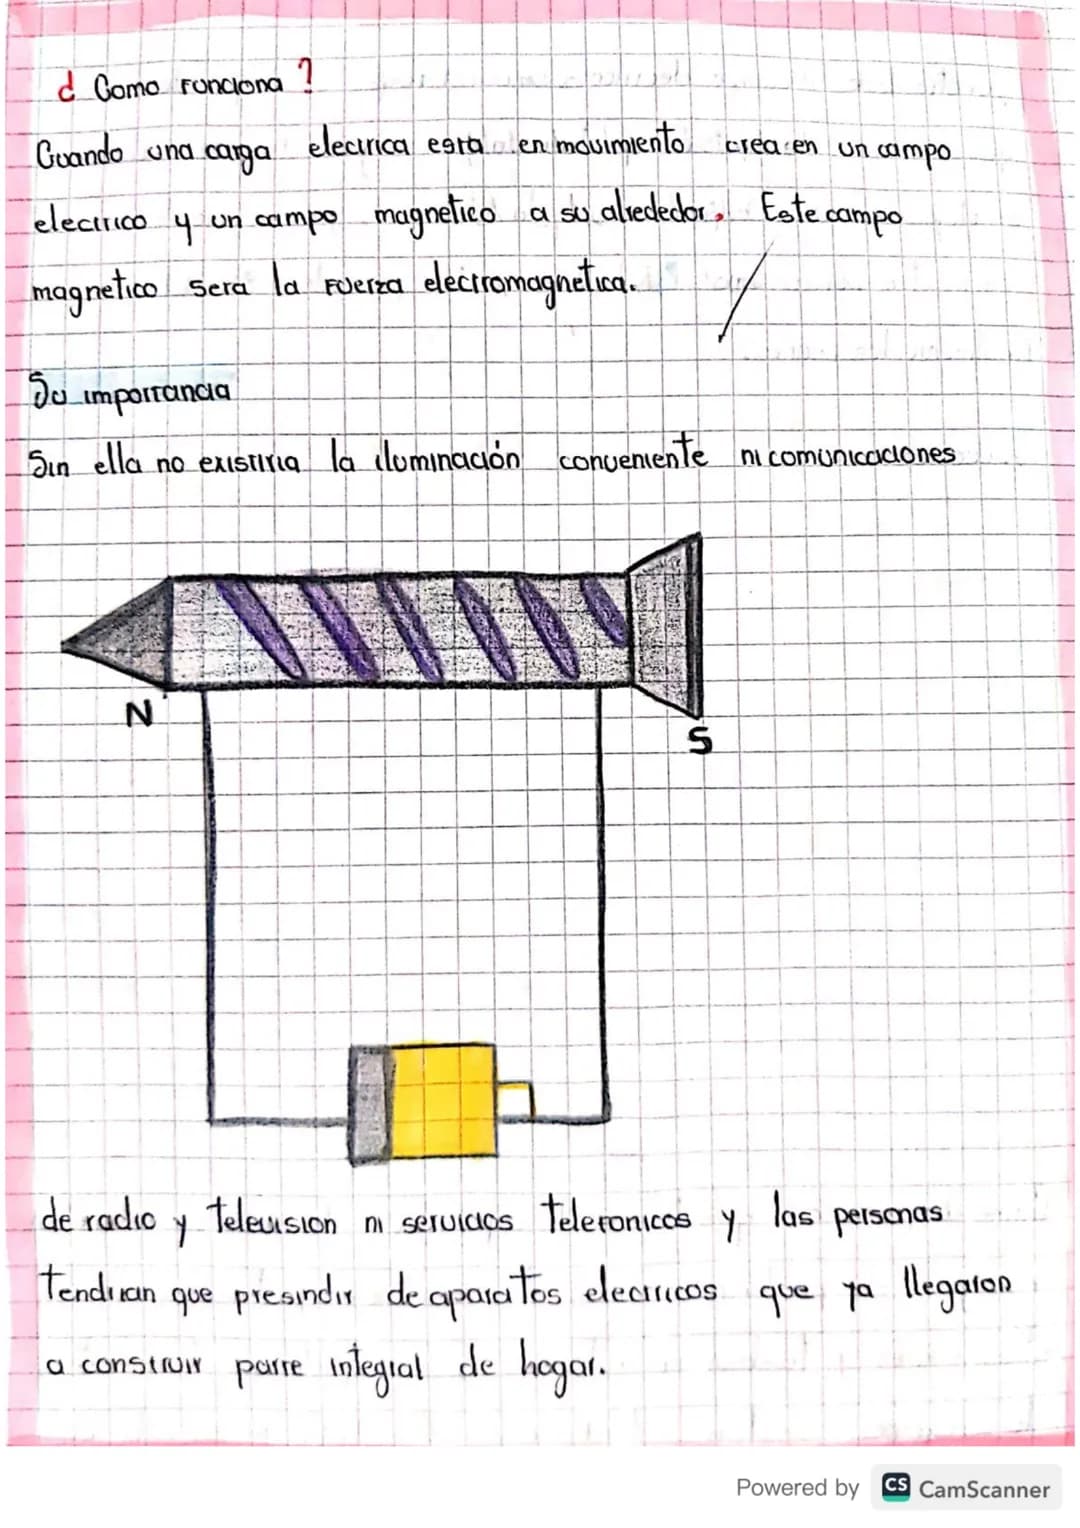 ¿ Como funciona ?
Cuando una carga electrica esta en movimiento crea en un campo
electrico y un campo magnetico a su alrededor. Este campo
magnetico sera la fuerza electromagnetica.
Su importancia
Sin ella no existiria la iluminación conveniente ni comunicaciones
N
S
de radio y television ni servicios telefonicos y las personas
tendrian que presindir de aparatos electricos que ya llegaron
a construir parte integral de hogar.
Powered by CS CamScanner